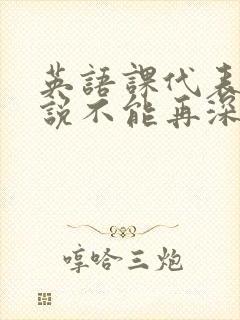 英語課代表
說不能再深
哼哈三炮